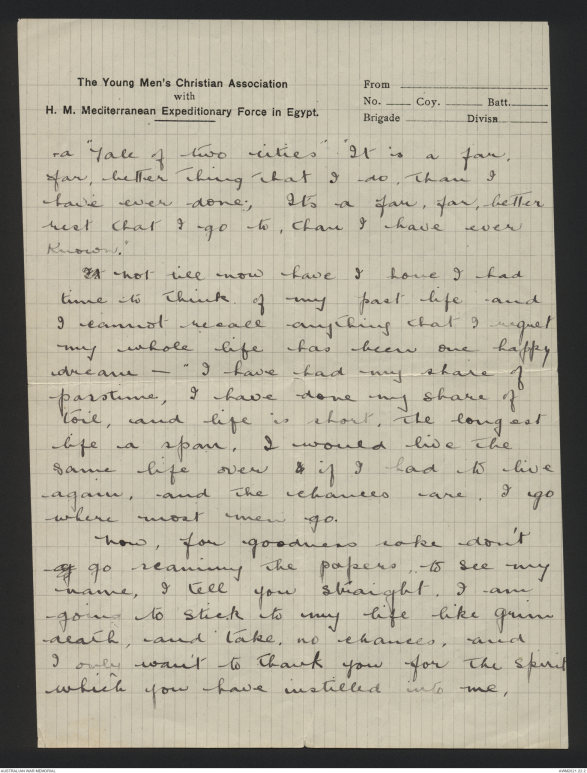 The Young Men's Christian Association
with
H. M. Mediterranean Expeditionary Force in Egypt.
From
No. Coy. Batt.
Brigade Divisn
a "Tale of two cities" "It is a far,
far, better thing that I do, than I
have ever done; It's a far, far, better
rest that I go to, than I have ever
known."
not till now have I had
time to think of my past life and
I cannot recall anything that I regret
my whole life has been one happy
dream — "I have had my share of
pastime, I have done my share of
toil, and life is short, the longest
life a span, I would live the
same life over if I had to live
again, and the chances are, I go
where most men go.
Now, for goodness sake don't
go scanning the papers, to see my
name, I tell you straight, I am
going to stick to my life like grim
death, and take, no chances, and
I only want to thank you for the spirit
which you have instilled into me,
AUSTRALIAN WAR MEMORIAL